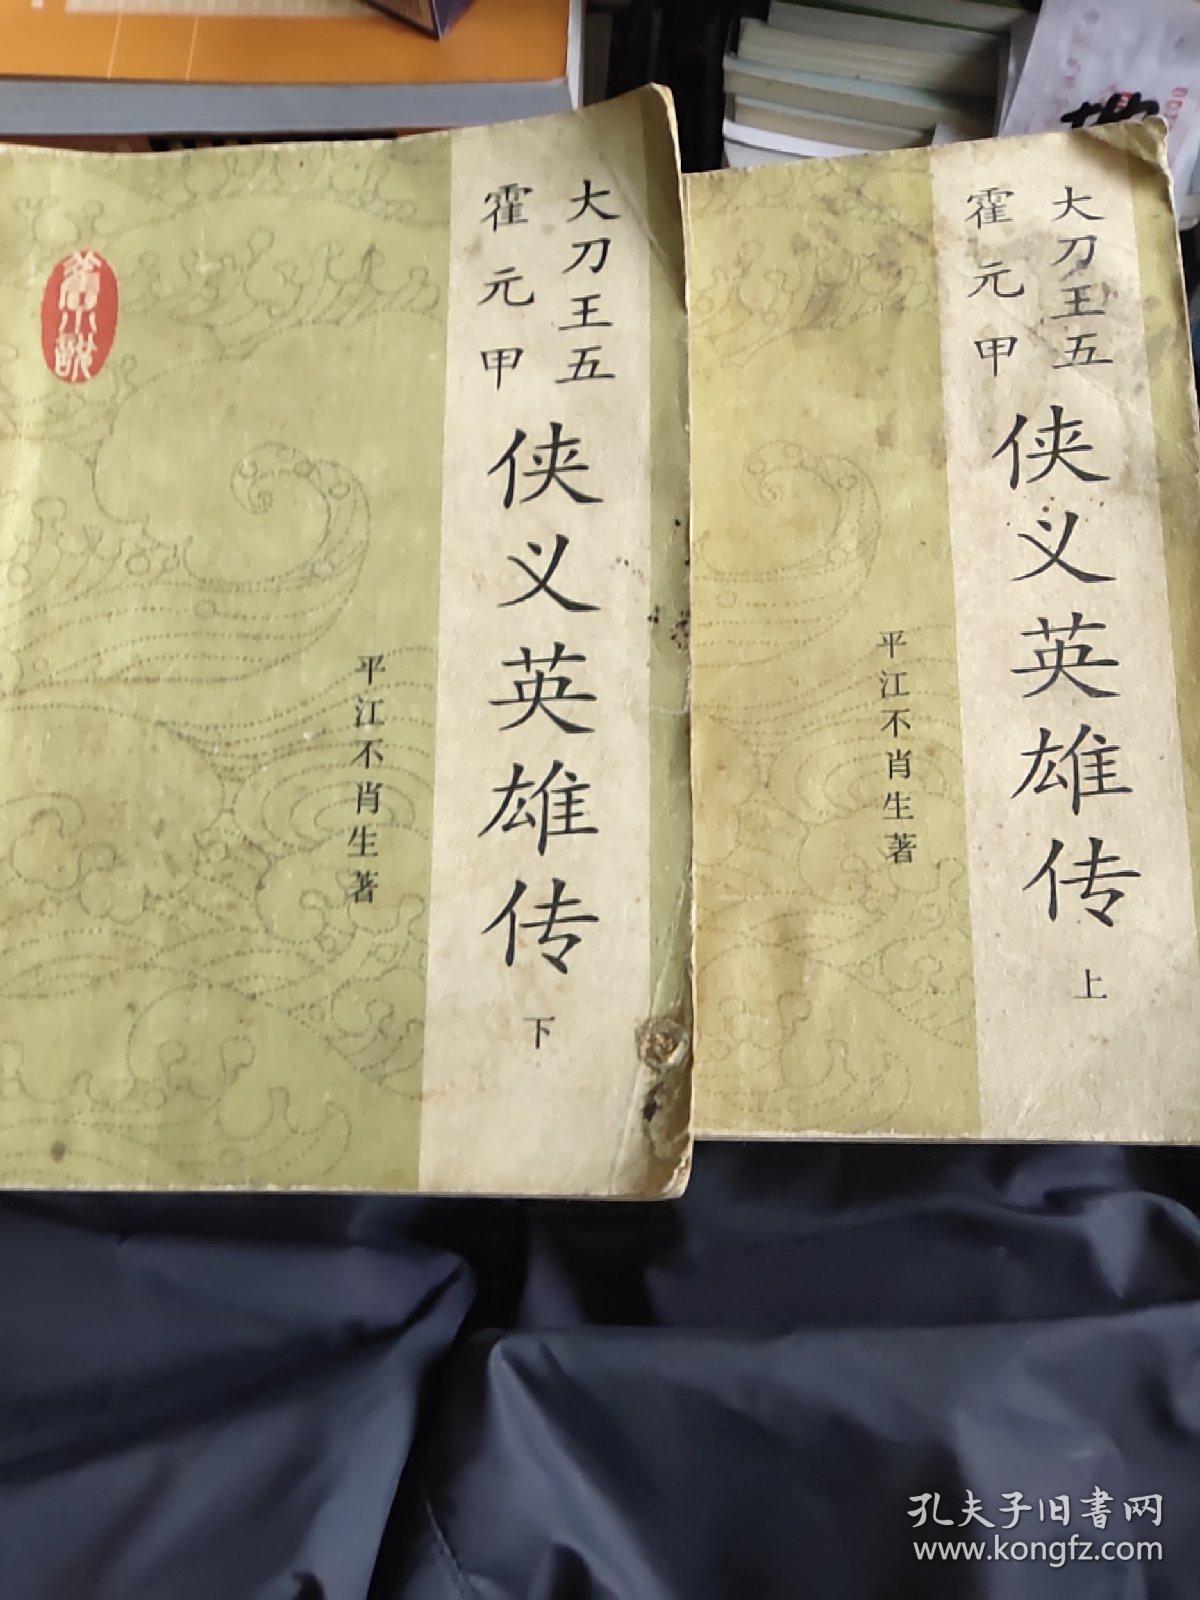 大刀王五
霍元甲
侠义英雄传
下
平江不肖生著
旧小說
大刀王五
霍元甲
侠义英雄传
上
平江不肖生著
孔夫子旧书网
www.kongfz.com